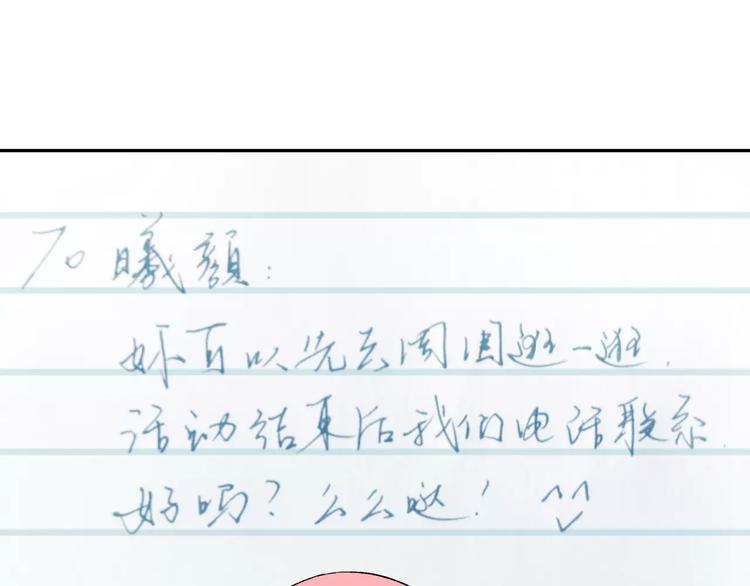 To 曦顏:
妳可以先去周围逛一逛.
活动结束后我们电话联系.
好吗?么么哒! ^^